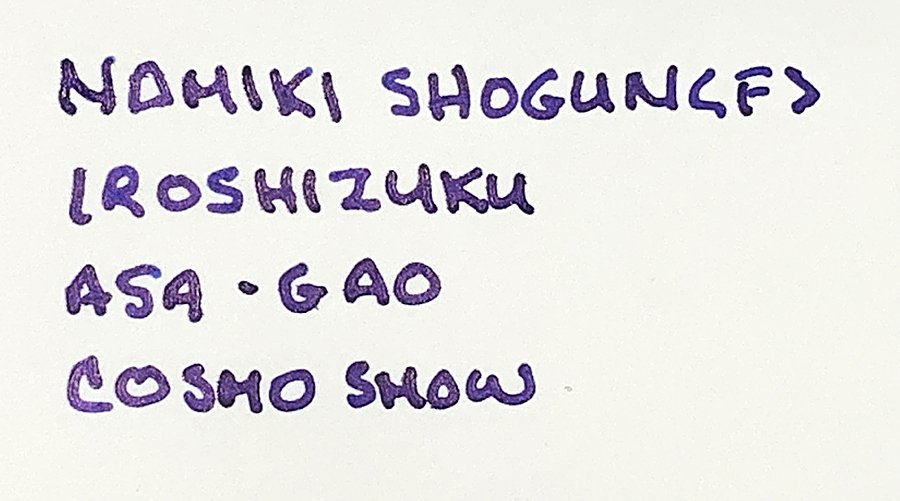 NAMIKI SHOGUN <F>
IROSHIZUKU
ASA-GAO
COSMO SNOW